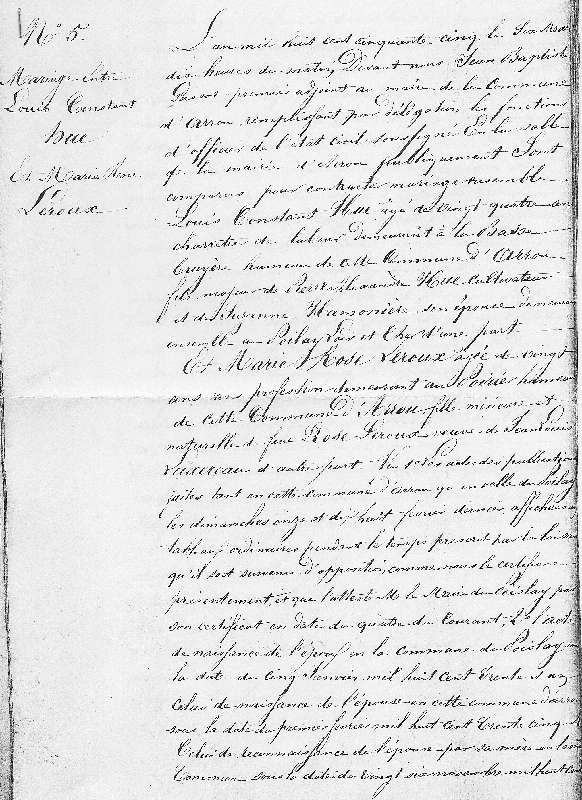 N° 5.
Mariage entre
Louis Constant
hue
Et Marie Rose
Leroux
L'an mil huit cent cinquante cinq le Six Mars
dix heures du matin, Devant nous Jean Baptiste
premier adjoint au maire de la Commune
d'Arrou remplissant par délégation les fonctions
d'officier de l'état civil soussigné En la salle
de la mairie d'Arrou publiquement Sont
comparus pour contracter mariage ensemble
Louis Constant Hue âgé de vingt quatre ans
charretier de labour demeurant à la Basse
bruyère hameau de cette Commune d'Arrou
fils majeur de Pierre Alexandre Hue Cultivateur
et de Suzanne Hamonière son épouse demeurant
ensemble au Poilay Loir et Cher d'une part
Et Marie Rose Leroux agée de vingt
ans sans profession demeurant au Poirier hameau
de cette Commune d'Arrou fille mineure et
naturelle de feue Rose Leroux veuve de Jean Louis
d'autre part Vu 1° les actes des publications
faites tant en cette commune d'Arrou qu'en celle du Poislay
les dimanches onze et dix huit février dernier, affichés aux
tableaux ordinaires pendant le temps prescrit par la loi sans
qu'il soit survenu d'opposition comme nous le certifions
présentement, et que l'atteste M. le Maire du Poislay par
son certificat en date du quatre du Courant. 2° l'acte
de naissance de l'époux en la commune du Poislay sous
la date du cinq Janvier mil huit Cent trente et un
Celui de naissance de l'épouse en cette commune d'Arrou
sous la date du premier février mil huit Cent Trente cinq
Celui de reconnaissance de l'épouse par sa mère en
Commune sous la date du vingt six novembre mil huit Cent